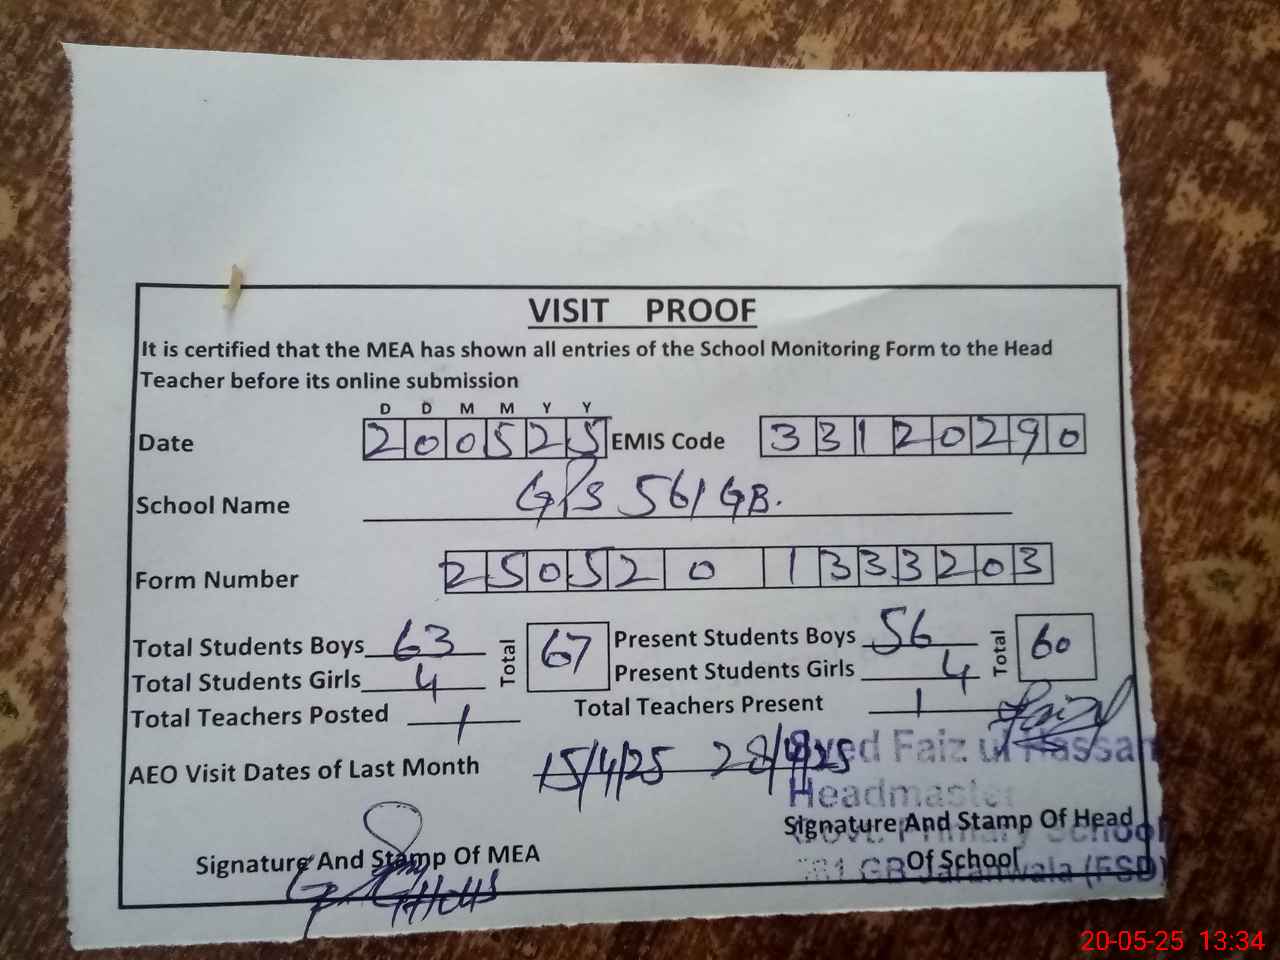 VISIT PROOF
It is certified that the MEA has shown all entries of the School Monitoring Form to the Head
Teacher before its online submission
D D M M Y Y
Date 200525 EMIS Code 33120290
School Name GPS 561 GB.
Form Number 2505201333203
Total Students Boys 63 Total 67 Present Students Boys 56 Total 60
Total Students Girls 4 Present Students Girls 4
Total Teachers Posted 1 Total Teachers Present 1
AEO Visit Dates of Last Month 15/4/25 28/4/25
Syed Faiz ul Hassan
Headmaster
Signature And Stamp Of Head
Govt. Primary School
Signature And Stamp Of MEA Of School
GB Jaranwala (FSD)
20-05-25 13:34